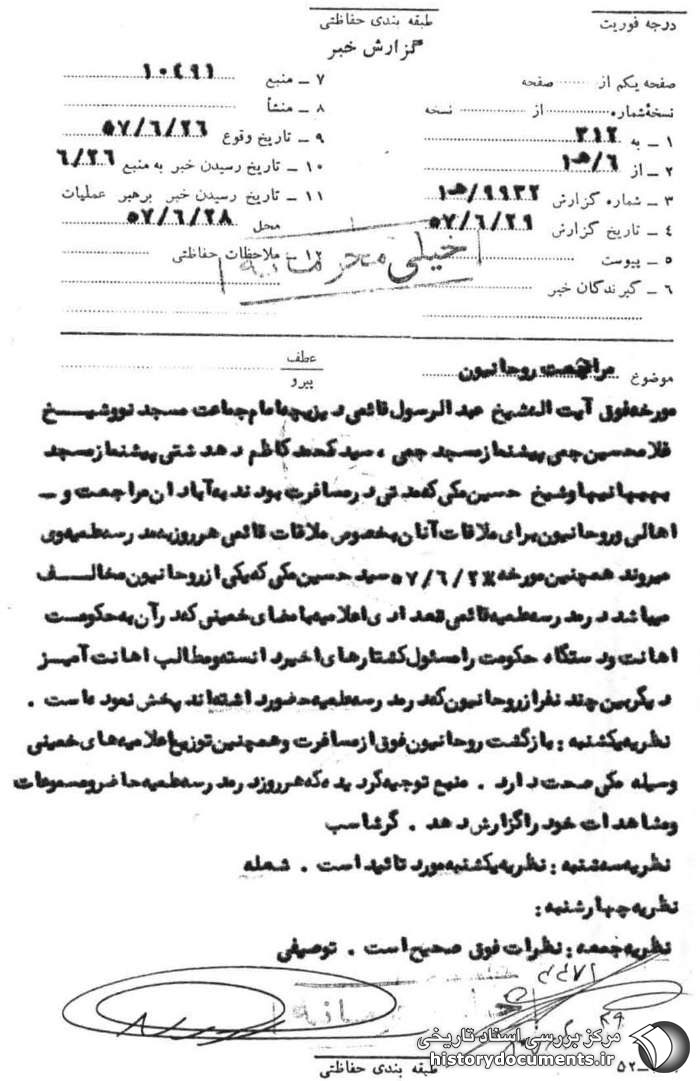 درجه فوریت
طبقه بندی حفاظتی
گزارش خبر
صفحه یکم از ........ صفحه
نسخهٔ شماره ........ از ........ نسخه
۱ ـ به ۳۱۲
۲ ـ از ۶/ه‍ ۱
۳ ـ شماره گزارش ۹۹۳۲/ه‍ ۱
۴ ـ تاریخ گزارش ۵۷/۶/۲۹
۵ ـ پیوست
۶ ـ گیرندگان خبر
۷ ـ منبع ۱۰۴۹۱
۸ ـ منشأ
۹ ـ تاریخ وقوع ۵۷/۶/۲۶
۱۰ ـ تاریخ رسیدن خبر به منبع ۶/۲۶
۱۱ ـ تاریخ رسیدن خبر برهبر عملیات
محل ۵۷/۶/۲۸
۱۲ ـ ملاحظات حفاظتی
خیلی محرمانه
موضوع مراجعت روحانیون
عطف
پیرو
مورخه فوق آیت اله شیخ عبدالرسول قائمی دیزیچه امام جماعت مسجد نو و شیخ
غلامحسین جمی پیشنماز مسجد جمی ، سید محمد کاظم دهدشتی پیشنماز مسجد
بهبهانیها و شیخ حسین مکی که مدتی در مسافرت بودند به آبادان مراجعت و ـ
اهالی و روحانیون برای ملاقات آنان بخصوص ملاقات قائمی هر روز به مدرسه علمیه وی
میروند همچنین مورخه ۵۷/۶/۲۸ سید حسین مکی که یکی از روحانیون مخالف
میباشد در مدرسه علمیه قائمی تعدادی اعلامیه با مضای خمینی که در آن به حکومت
اهانت و دستگاه حکومت را مسئول کشتارهای اخیر دانسته و مطالب اهانت آمیز
دیگر بین چند نفر از روحانیون که در مدرسه علمیه حضور داشته اند پخش نموده است .
نظریه یکشنبه : بازگشت روحانیون فوق از مسافرت و همچنین توزیع اعلامیه های خمینی
وسیله مکی صحت دارد . منبع توجیه گردیده که هر روز در مدرسه علمیه حاضر و مسموعات
و مشاهدات خود را گزارش دهد . گرشاسب
نظریه سه شنبه : نظریه یکشنبه مورد تائید است . شعله
نظریه چهارشنبه :
نظریه جمعه : نظرات فوق صحیح است . توصیفی
طبقه بندی حفاظتی
مرکز بررسی اسناد تاریخی
historydocuments.ir